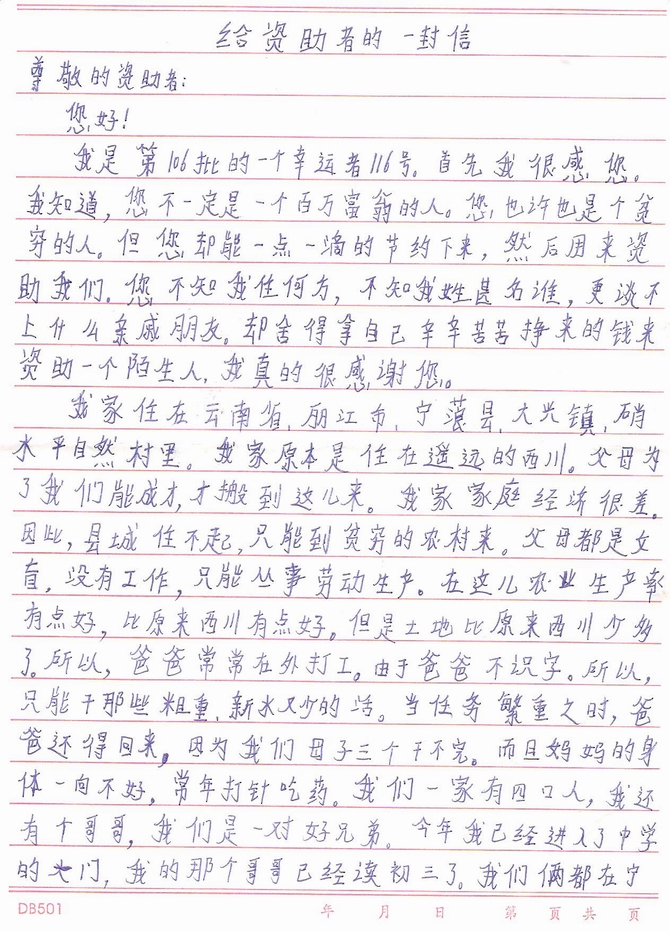 给资助者的一封信
尊敬的资助者:
您好!
我是第106批的一个幸运者116号。首先我很感您。
我知道,您不一定是一个百万富翁的人。您也许也是个贫
穷的人。但您却能一点一滴的节约下来,然后用来资
助我们。您不知我住何方,不知我姓甚名谁,更谈不
上什么亲戚朋友。却舍得拿自己辛辛苦苦挣来的钱来
资助一个陌生人,我真的很感谢您。
我家住在云南省,丽江市,宁蒗县,大兴镇,硝
水平自然村里。我家原本是住在遥远的西川。父母为
了我们能成才,才搬到这儿来。我家家庭经济很差。
因此,县城住不起,只能到贫穷的农村来。父母都是文
盲,没有工作,只能从事劳动生产。在这儿农业生产率
有点好,比原来西川有点好。但是土地比原来西川少多
了。所以,爸爸常常在外打工。由于爸爸不识字。所以,
只能干那些粗重,新水又少的活。当任务繁重之时,爸
爸还得回来,因为我们母子三个干不完。而且妈妈的身
体一向不好,常年打针吃药。我们一家有四口人,我还
有个哥哥,我们是一对好兄弟。今年我已经进入了中学
的大门,我的那个哥哥已经读初三了。我们俩都在宁
DB501 年 月 日 第 页 共 页